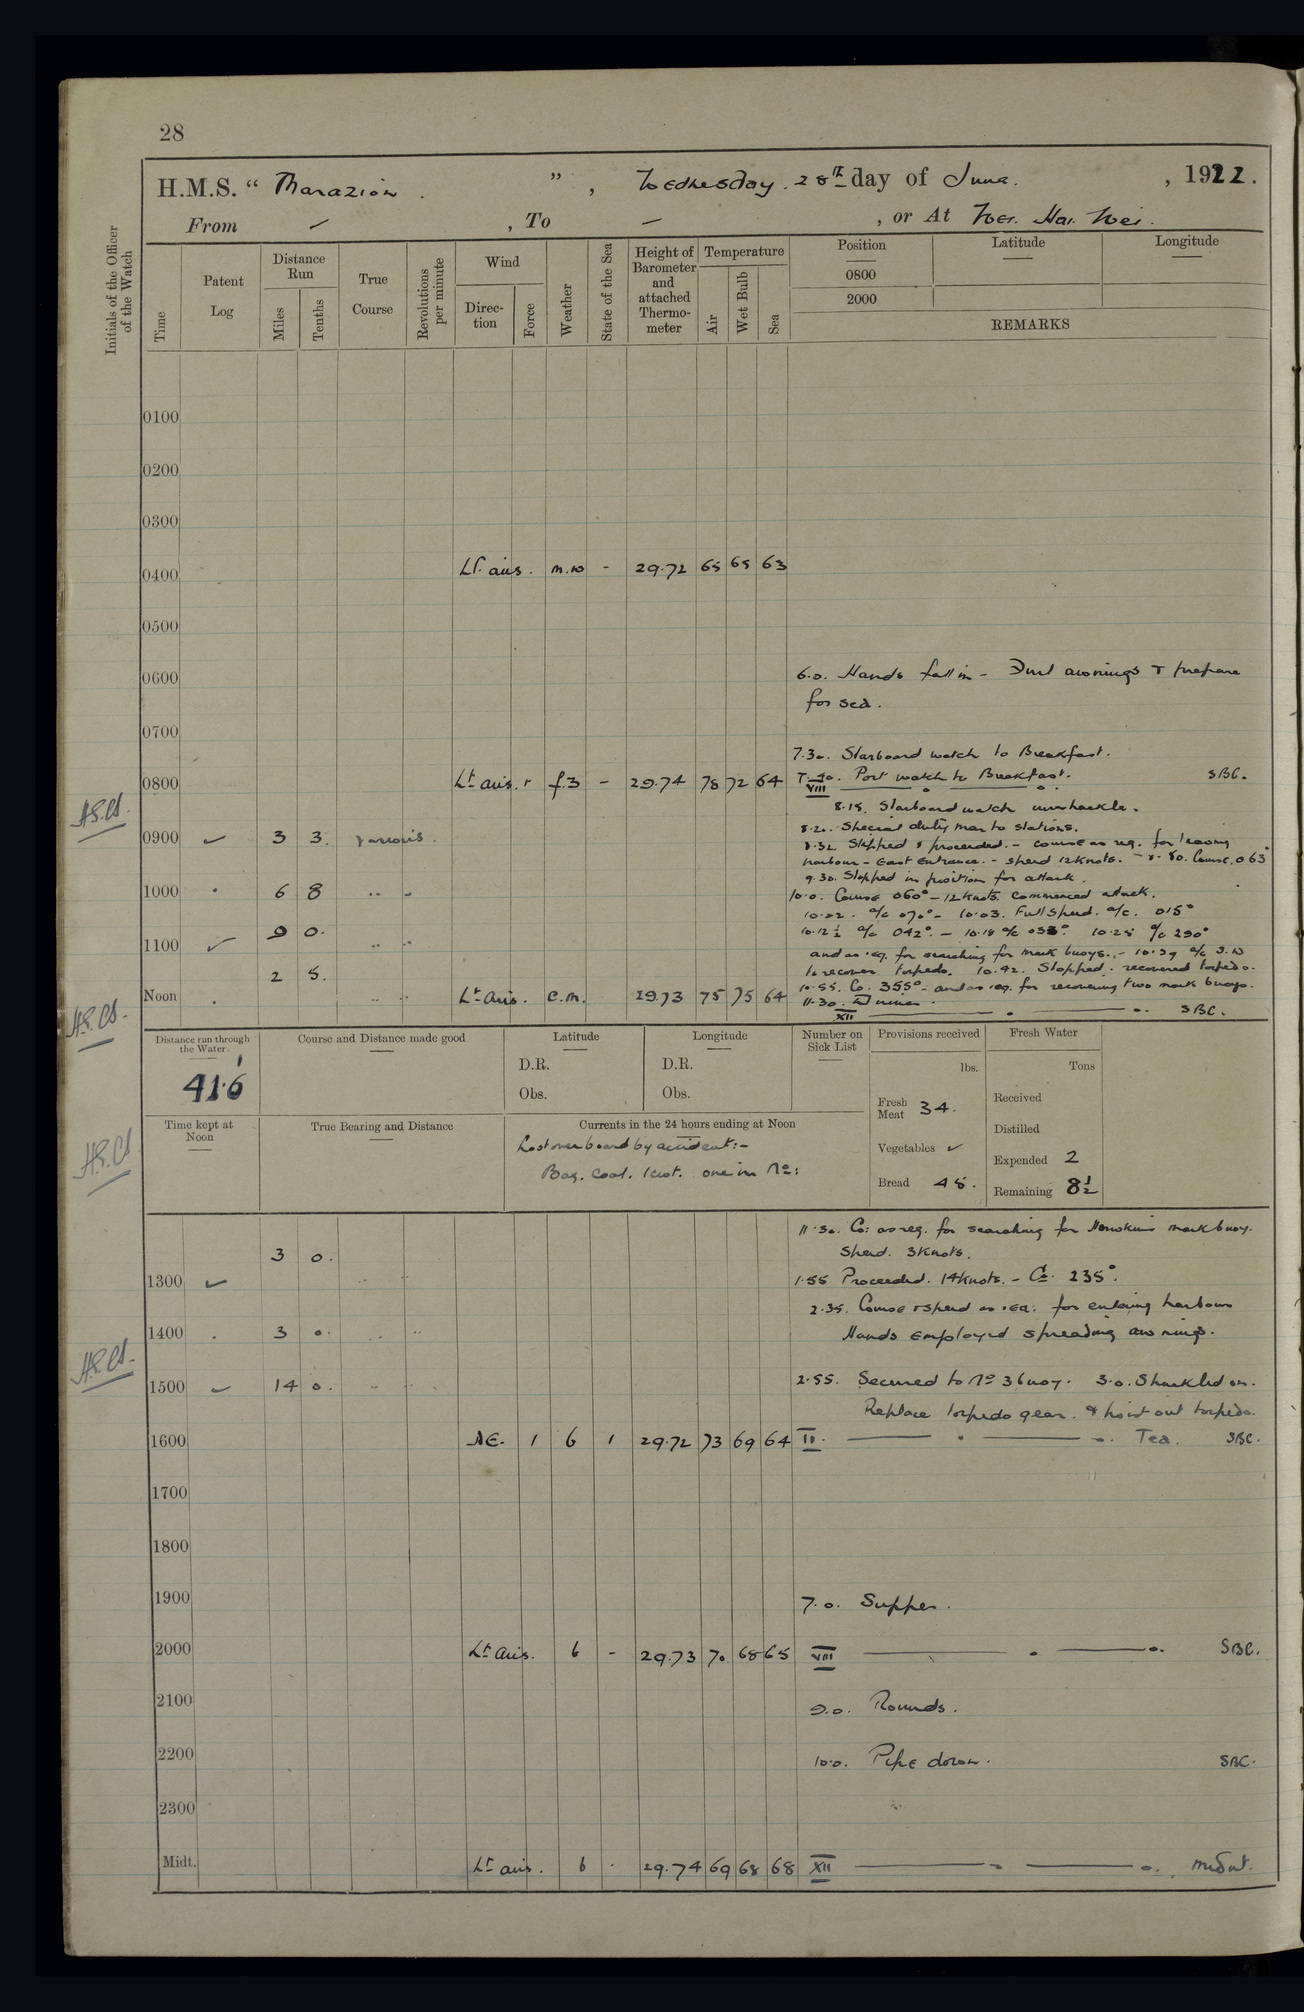 28
H.M.S. “ Marazion . ” , Wednesday . 28th day of June. , 1922.
From – , To – , or At Wei. Hai. Wei.
Initials of the Officer of the Watch
Time
Patent Log
Distance Run
Miles
Tenths
True Course
Revolutions per minute
Wind
Direction
Force
Weather
State of the Sea
Height of Barometer and attached Thermometer
Temperature
Air
Wet Bulb
Sea
Position
Latitude
Longitude
0800
2000
REMARKS
0100
0200
0300
0400 Lt. airs. m.w - 29.72 65 65 63
0500
0600
6.0. Hands fall in - Furl awnings & prepare
for sea.
0700
7.30. Starboard watch to Breakfast.
0800 Lt airs. f.3 - 29.74 78 72 64
Port watch to Breakfast.
VIII SBC.
8.15. Starboard watch unshackle.
8.20. Special duty men to stations.
0900 ✓ 3 3. various.
8.32 Slipped & proceeded. - course as req. for leaving
harbour - East Entrance. - speed 12 knots. - 8.50. Course. 063°
9.30. Stopped in position for attack.
1000 6 8 .. ..
10.0. Course 060° - 12 knots. commenced attack.
10.02. a/c 070° - 10.03. Full speed. a/c. 015°
9 0.
10.12½ a/c 042°. - 10.18 a/c 10.25 a/c 290°
1100 ✓ .. ..
and as req. for searching for mark buoys. - 10.39 a/c S.W
2 5.
to recover torpedo. 10.42. Stopped. recovered torpedo.
Noon .. .. Lt airs. c.m. 29.73 75 75 64
10.55. Co. 355° - and as req. for recovering two mark buoys.
11.30. Dinner.
XII SBC.
Distance run through the Water.
41.6
Course and Distance made good
Latitude
D.R.
Obs.
Longitude
D.R.
Obs.
Number on Sick List
Provisions received
lbs.
Fresh Meat 34.
Vegetables ✓
Bread 45.
Fresh Water
Tons
Received
Distilled
Expended 2
Remaining 8½
Time kept at Noon
True Bearing and Distance
Currents in the 24 hours ending at Noon
Lost overboard by accident:-
Bag. Coal. 1 cwt. one in No:
11.30. Co: as req. for searching for mark buoy.
3 0.
Speed. 3 knots.
1300 ✓ .. ..
1.55 Proceeded. 14 knots. - Co. 235°.
2.35. Course & speed as req: for entering harbour
1400 . 3 0. .. ..
Hands employed spreading awnings.
1500 ✓ 14 0. .. ..
2.55. Secured to No 3 buoy. 3.0. Shackled on.
Replace torpedo gear. & hoist out torpedo.
1600 NE. 1 b 1 29.72 73 69 64 Tea. SBC.
1700
1800
1900
7.0. Supper.
2000 Lt airs. b - 29.73 70 68 65 VIII SBC.
2100
9.0. Rounds.
2200
10.0. Pipe down. SBC.
2300
Midt. Lt airs. b . 29.74 69 68 68 XII